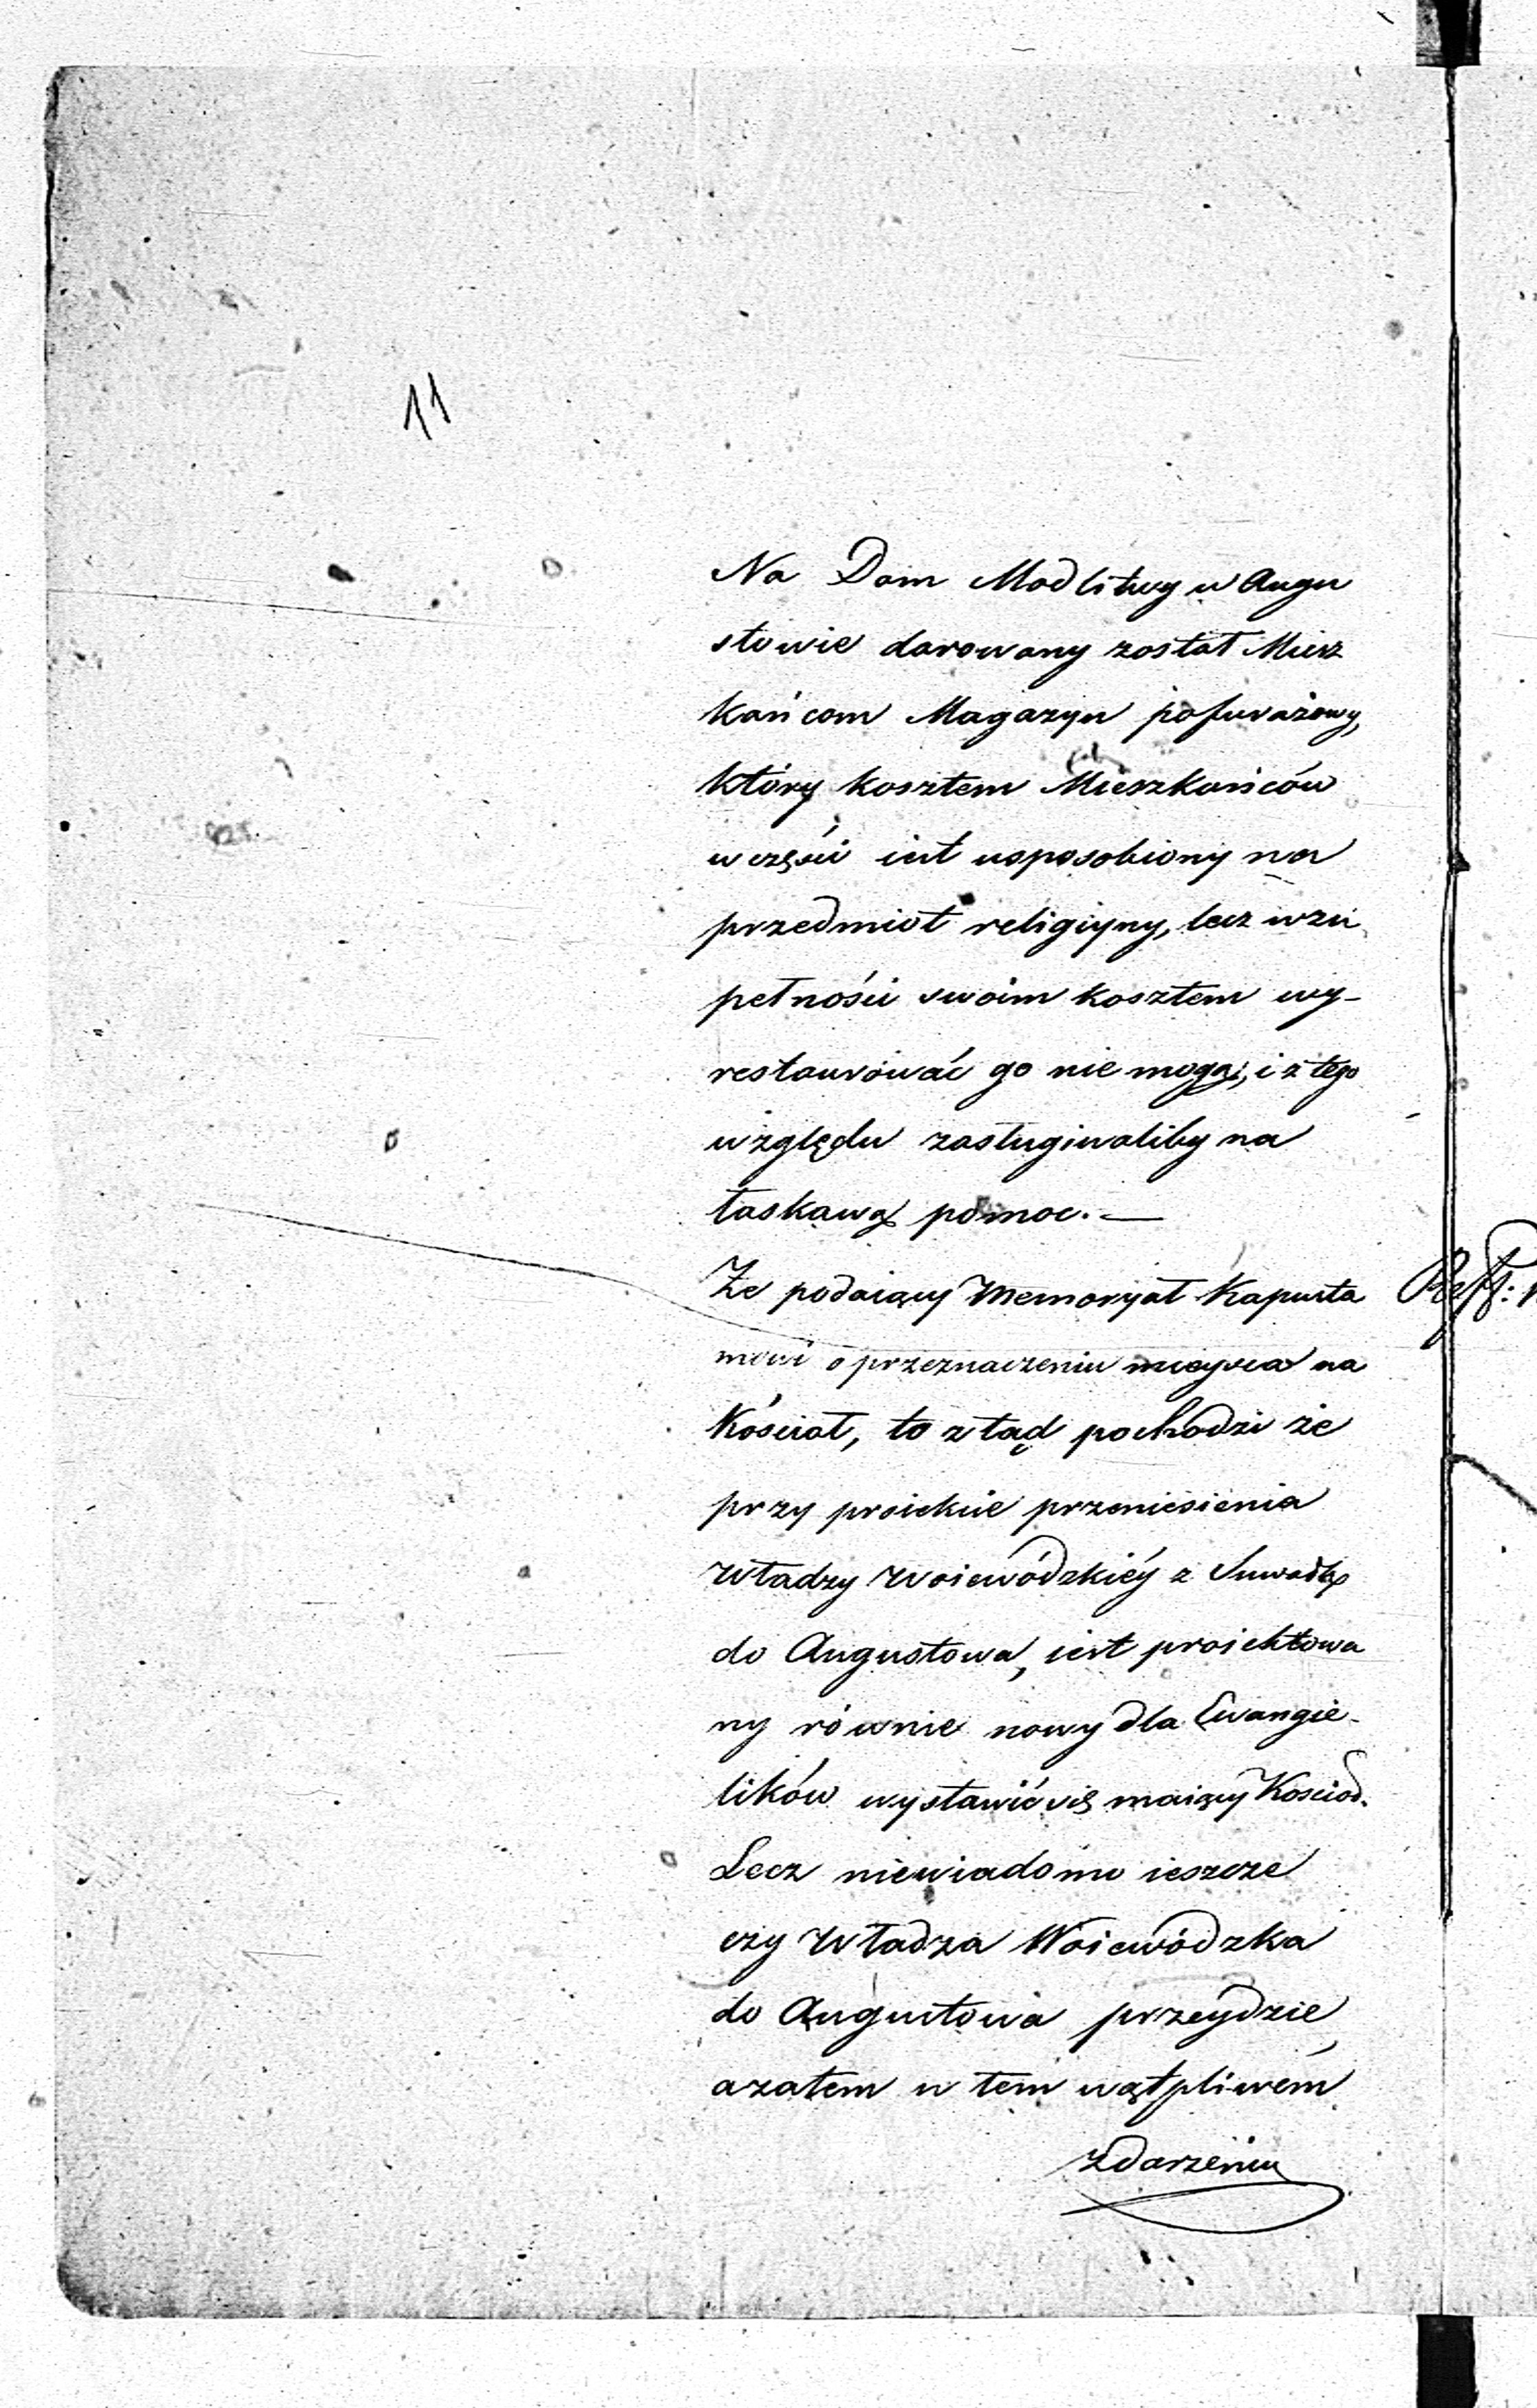 11
Na Dom Modlitwy w Augu
stowie darowany został Miesz
kańcom Magazyn pofurażowy,
który kosztem Mieszkańców
w części iest usposobiony na
przedmiot religiyny, lecz wzu
pełności swoim kosztem wy-
restaurować go nie mogą, i z tego
względu zasługiwaliby na
łaskawą pomoc. —
Że podaiący Memoryał Kapusta
mówi o przeznaczeniu mieysca na
Kościoł, to ztąd pochodzi że
przy proiekcie przeniesienia
Władzy Woiewódzkiéy z Suwałk
do Augustowa, iest proiektowa
ny równie nowy dla Ewangie-
lików wystawić się maiący Kościoł.
Lecz niewiadomo ieszcze
czy Władza Woiewódzka
do Augustowa przeydzie
azatem w tém wątpliwém
zdarzeniu